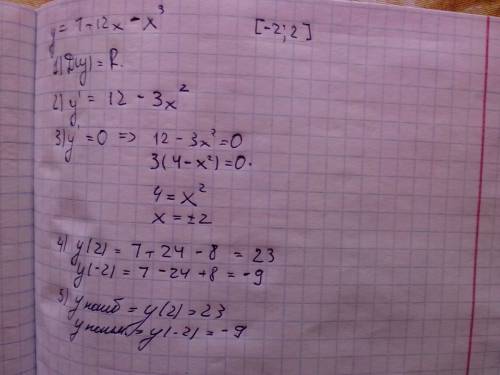 y = 7 + 12x - x³ [-2; 2]
1) D(y) = R.
2) y' = 12 - 3x²
3) y' = 0 => 12 - 3x² = 0
3(4 - x²) = 0.
4 = x²
x = ±2
4) y(2) = 7 + 24 - 8 = 23
y(-2) = 7 - 24 + 8 = -9
5) y наиб = y(2) = 23
y наим = y(-2) = -9